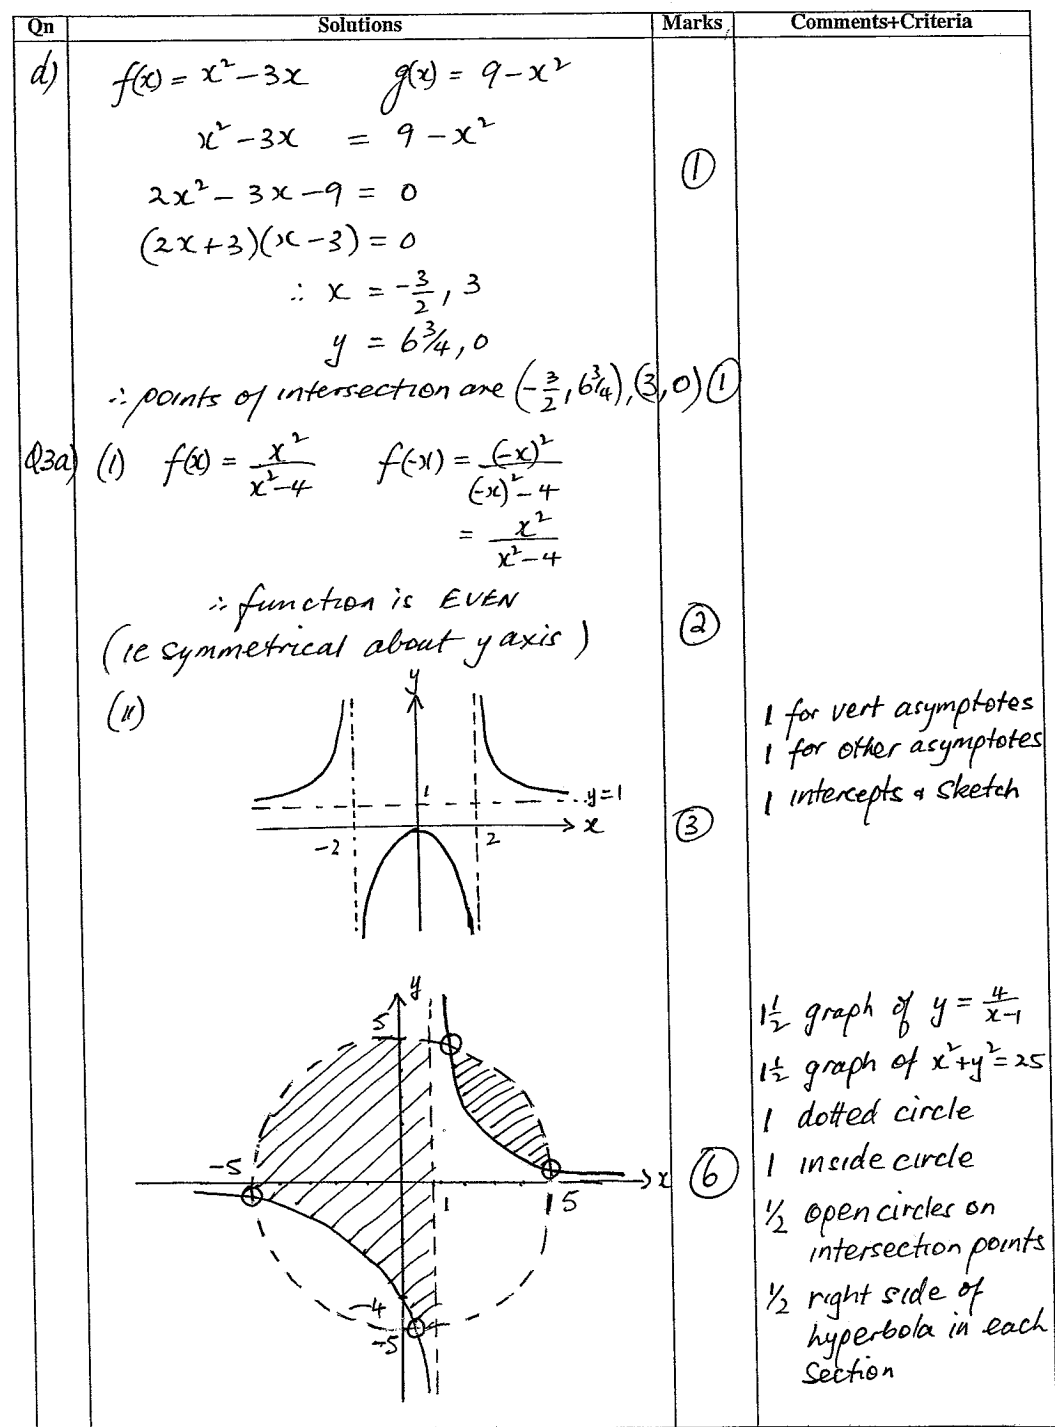 Qn Solutions Marks Comments+Criteria
d) f(x) = x² - 3x g(x) = 9 - x²
x² - 3x = 9 - x²
①
2x² - 3x - 9 = 0
(2x+3)(x-3) = 0
∴ x = -3/2, 3
y = 6 3/4, 0
∴ points of intersection are (-3/2, 6 3/4), (3, 0) ①
Q3a) (i) f(x) = x²/(x²-4) f(-x) = (-x)²/((-x)²-4)
= x²/(x²-4)
∴ function is EVEN
②
(ie symmetrical about y axis)
(ii)
y
1
y=1
x
-2
2
③
1 for vert asymptotes
1 for other asymptotes
1 intercepts & sketch
y
5
-5
x
1
5
-4
-5
⑥
1½ graph of y = 4/(x-1)
1½ graph of x²+y²=25
1 dotted circle
1 inside circle
½ open circles on
intersection points
½ right side of
hyperbola in each
section